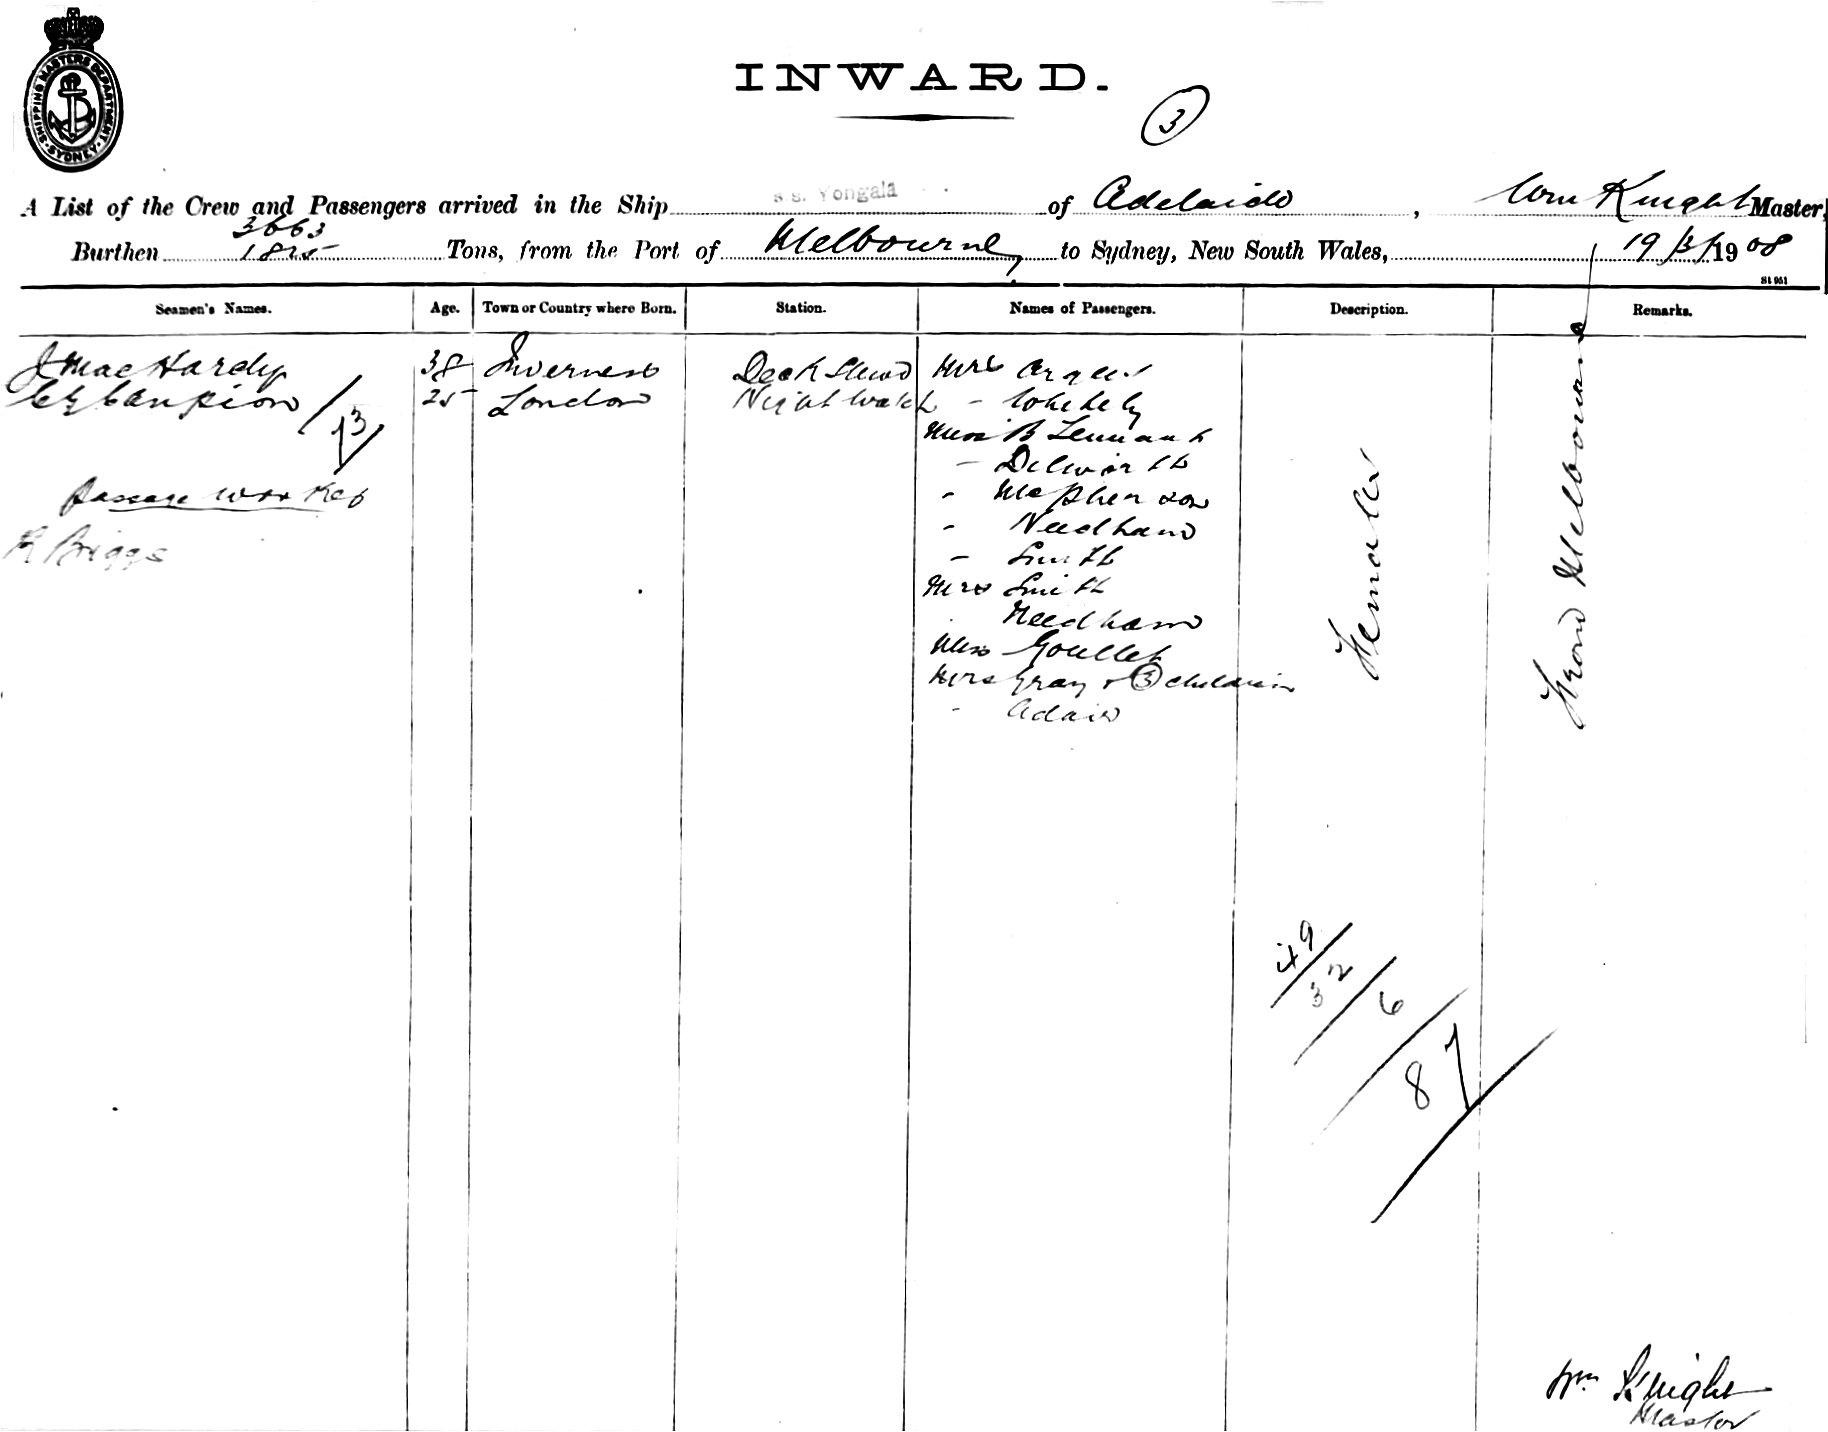 SHIPPING MASTERS DEPARTMENT. SYDNEY
INWARD.
3
A List of the Crew and Passengers arrived in the Ship s.s. Yongala of Adelaide, Wm Knight Master,
Burthen 3663 1825 Tons, from the Port of Melbourne, to Sydney, New South Wales, 19/3/1908
St 951
Seamen's Names. Age. Town or Country where Born. Station. Names of Passengers. Description. Remarks.
J MacHardy 38 Inverness Deck Stewd Mrs Argent
Campion 25 London Night Watch -
13
Miss B Lennant
- Dilworth
Passage worker
- McPherson
- Needham
R Briggs
- Smith
Mrs Smith
Needham
Miss Goullet
Mrs Gray + 3 children
- Adair
Female
From Melbourne
49
32
6
87
Wm Knight
Master